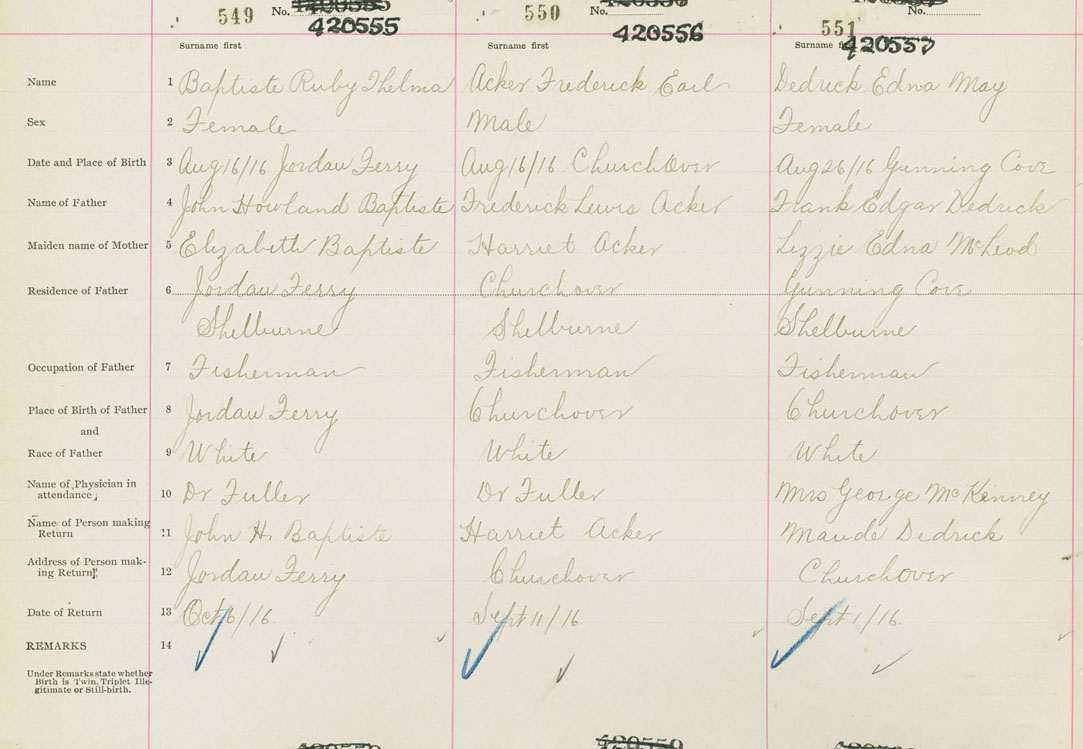 549 No. 420555 550 No. 420556 551 No. 420557
Surname first Surname first Surname
Name 1 Baptiste Ruby Thelma Acker Frederick Earl Dedrick Edna May
Sex 2 Female Male Female
Date and Place of Birth 3 Aug 16/16 Jordan Ferry Aug 16/16 Churchover Aug 26/16 Gunning Cove
Name of Father 4 John Howland Baptiste Frederick Lewis Acker Frank Edgar Dedrick
Maiden name of Mother 5 Elizabeth Baptiste Harriet Acker Lizzie Edna McLeod
Residence of Father 6 Jordan Ferry Churchover Gunning Cove
Shelburne Shelburne Shelburne
Occupation of Father 7 Fisherman Fisherman Fisherman
Place of Birth of Father 8 Jordan Ferry Churchover Churchover
and
Race of Father 9 White White White
Name of Physician in
attendance, 10 Dr Fuller Dr Fuller Mrs George McKinney
Name of Person making
Return 11 John H. Baptiste Harriet Acker Maude Dedrick
Address of Person mak-
ing Return 12 Jordan Ferry Churchover Churchover
Date of Return 13 Oct 6/16. Sept 11/16 Sept 1/16.
REMARKS 14
Under Remarks state whether
Birth is Twin, Triplet Ille-
gitimate or Still-birth.